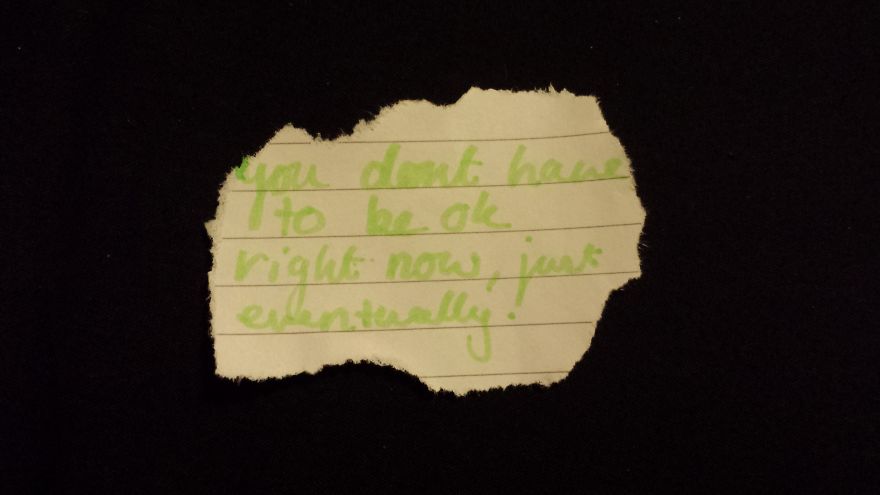 you dont have
to be ok
right now, just
eventually!